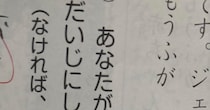 です。ジェ
もうふが
あなたが
だいじにし
（なければ、